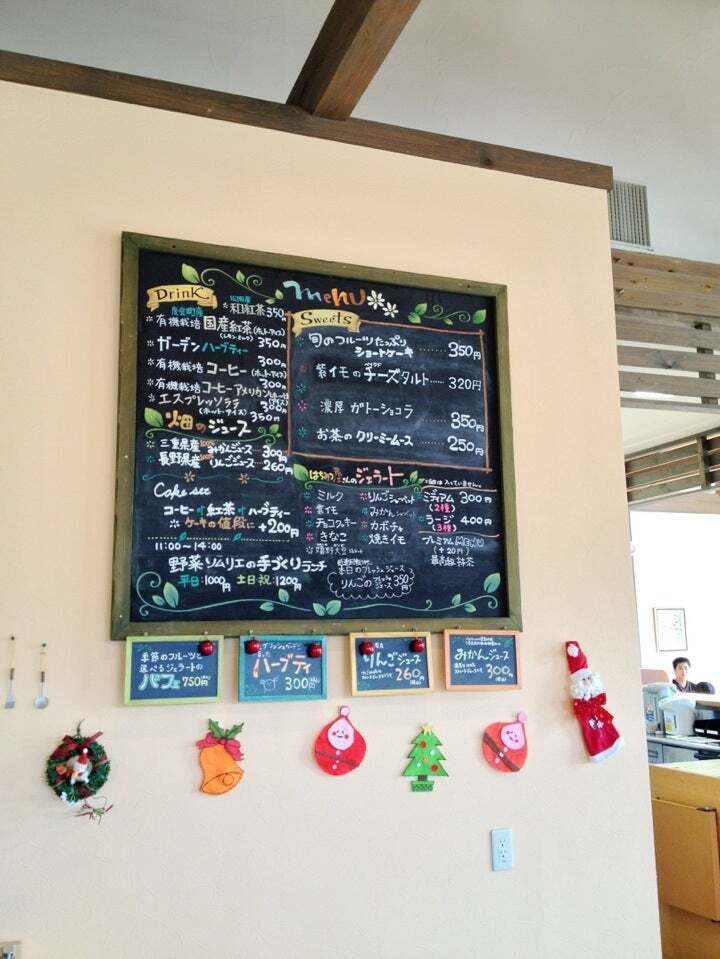 menu
Drink
和紅茶 350円
有機栽培 国産紅茶 (ホット・アイス)
350円
ガーデン ハーブティー
300円
有機栽培 コーヒー (ホット・アイス)
300円
有機栽培 コーヒーアメリカン
エスプレッソラテ 300円
(ホット・アイス) 350円
畑のジュース
三重県産 100% みかんジュース 300円
長野県産 100% りんごジュース 260円
Cake set
コーヒー 紅茶 ハーブティー
ケーキの値段に +200円
11:00〜14:00
野菜ソムリエの手づくりランチ
平日:1000円 土日祝:1200円
Sweets
旬のフルーツたっぷり
ショートケーキ 350円
紫イモのチーズタルト 320円
濃厚 ガトーショコラ
350円
お茶のクリーミームース 250円
はちみつ屋さんのジェラート
ミルク
紫イモ
チョコクッキー
きなこ
りんごシャーベット
みかんシャーベット
カボチャ
焼きイモ
ミディアム 300円
(2種)
ラージ 400円
(3種)
プレミアムMENU
(+20円)
最高級抹茶
本日のフレッシュジュース
りんごのフレッシュジュース 350円
季節のフルーツと
選べるジェラートの
パフェ 750円
ハーブティ
300円
りんごジュース
260円
みかんジュース
300円